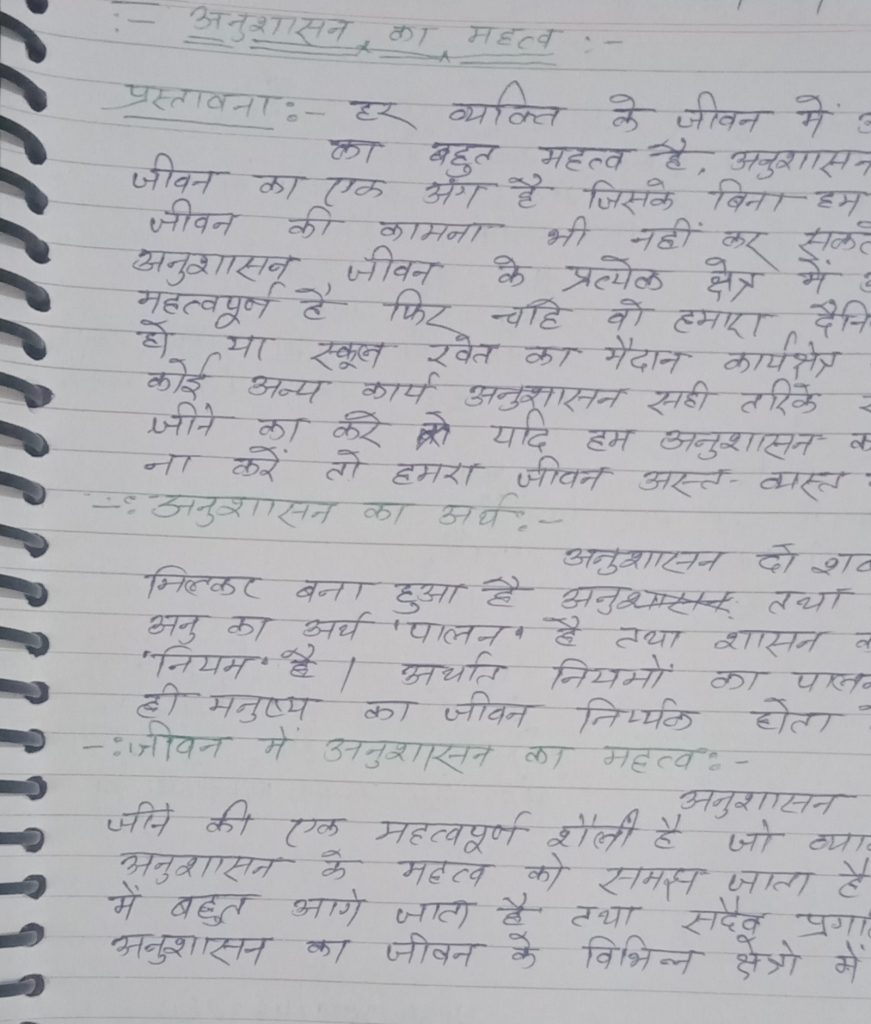 :- अनुशासन का महत्व :-
प्रस्तावना :- हर व्यक्ति के जीवन में
का बहुत महत्व है. अनुशासन
जीवन का एक अंग है जिसके बिना हम
जीवन की कामना भी नहीं कर सकते
अनुशासन जीवन के प्रत्येक क्षेत्र में
महत्वपूर्ण है फिर चाहे वो हमारा दैनि
हो या स्कूल खेल का मैदान कार्यक्षेत्र
कोई अन्य कार्य अनुशासन सही तरिके
जीने का करे यदि हम अनुशासन
ना करें तो हमरा जीवन अस्त-व्यस्त
-: अनुशासन का अर्थ :-
अनुशासन दो शब
मिलकर बना हुआ है अनु तथा
अनु का अर्थ 'पालन' है तथा शासन
'नियम' है। अर्थात नियमों का पालन
ही मनुष्य का जीवन होता
-: जीवन में अनुशासन का महत्व :-
अनुशासन
जीने की एक महत्वपूर्ण शैली है जो
अनुशासन के महत्व को समझ जाता है
में बहुत आगे जाता है तथा सदैव प्रगति
अनुशासन का जीवन के विभिन्न क्षेत्रो में